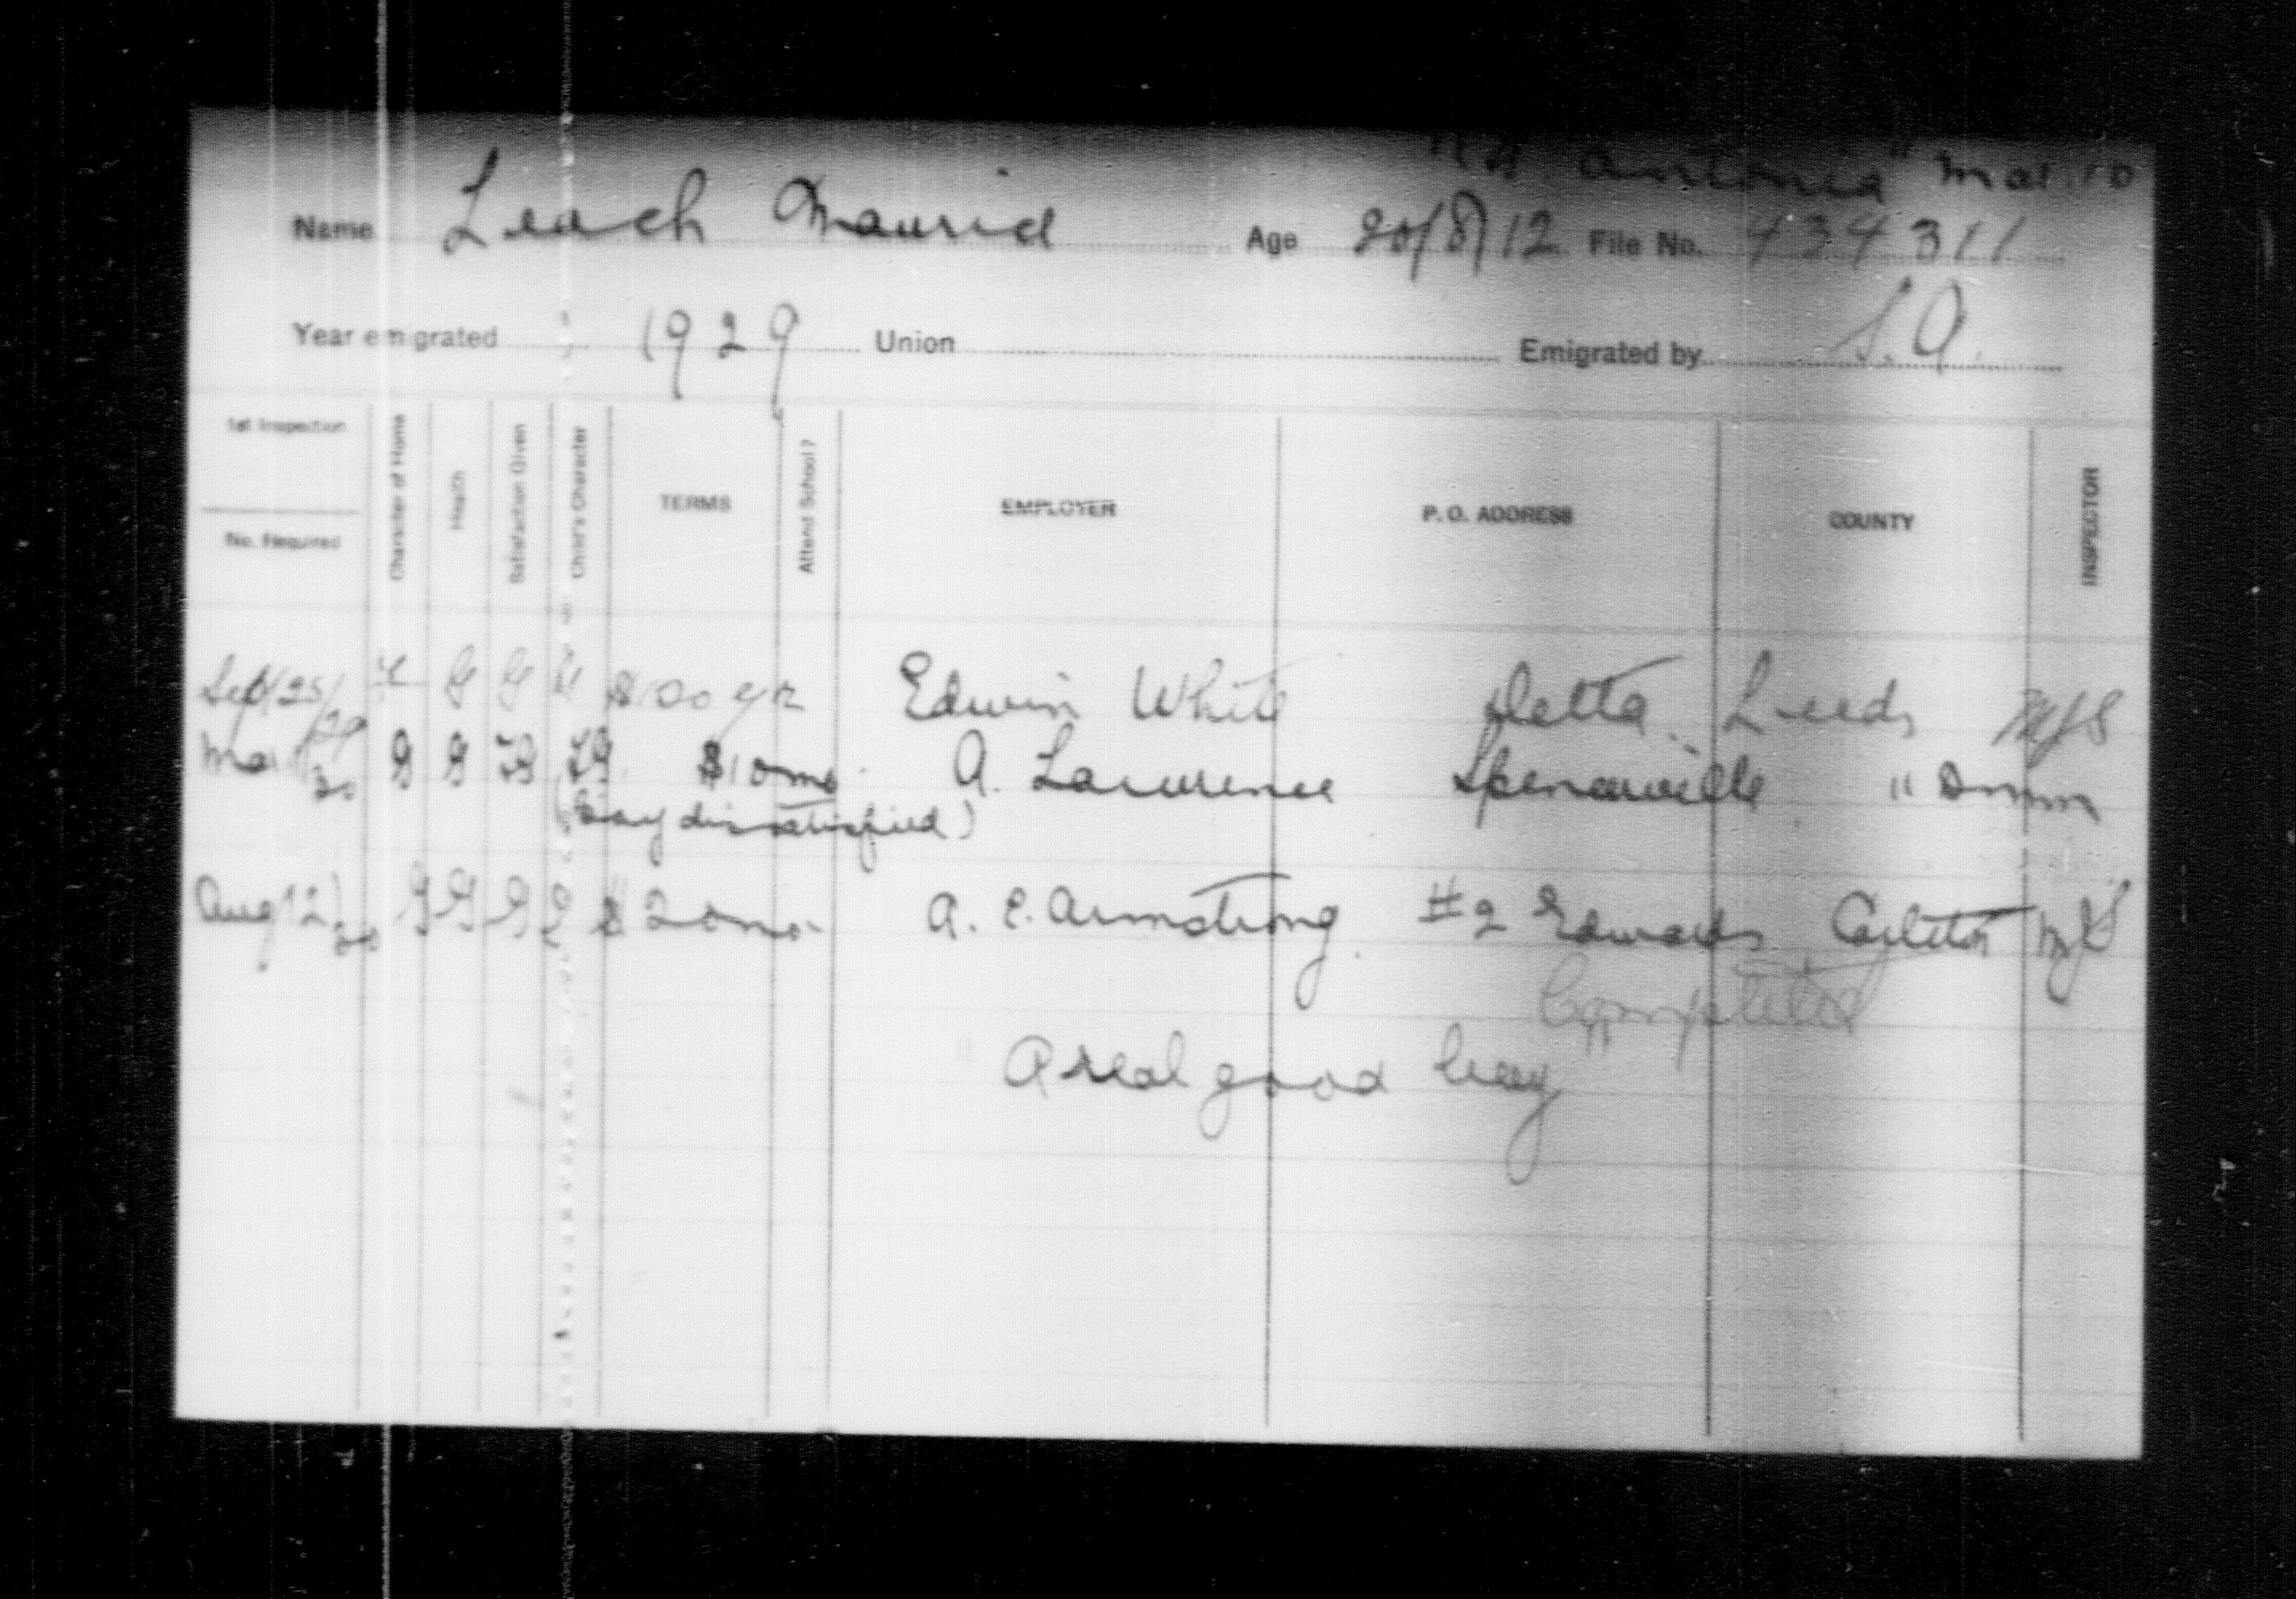 Antonia" Mar 10
Name Leach Mauric Age 20/8/12 File No. 434311
Year emigrated 1929 Union Emigrated by S.A.
1st Inspection
No. Required
Character of Home
Health
Satisfaction Given
Child's Character
TERMS
Attend School?
EMPLOYER
P. O. ADDRESS
COUNTY
INSPECTOR
Sept 25/29 F G G G $100 yr Edwin White Delta Leeds MJS
Mar 30 G G FG FG $10 mo A. Lawrence Spencerville "
(Boy dissatisfied)
Aug 12/30 G G G G $20 mo. A. E. Armstrong #2 Edwards Carleton MJS
Completed
A real good boy